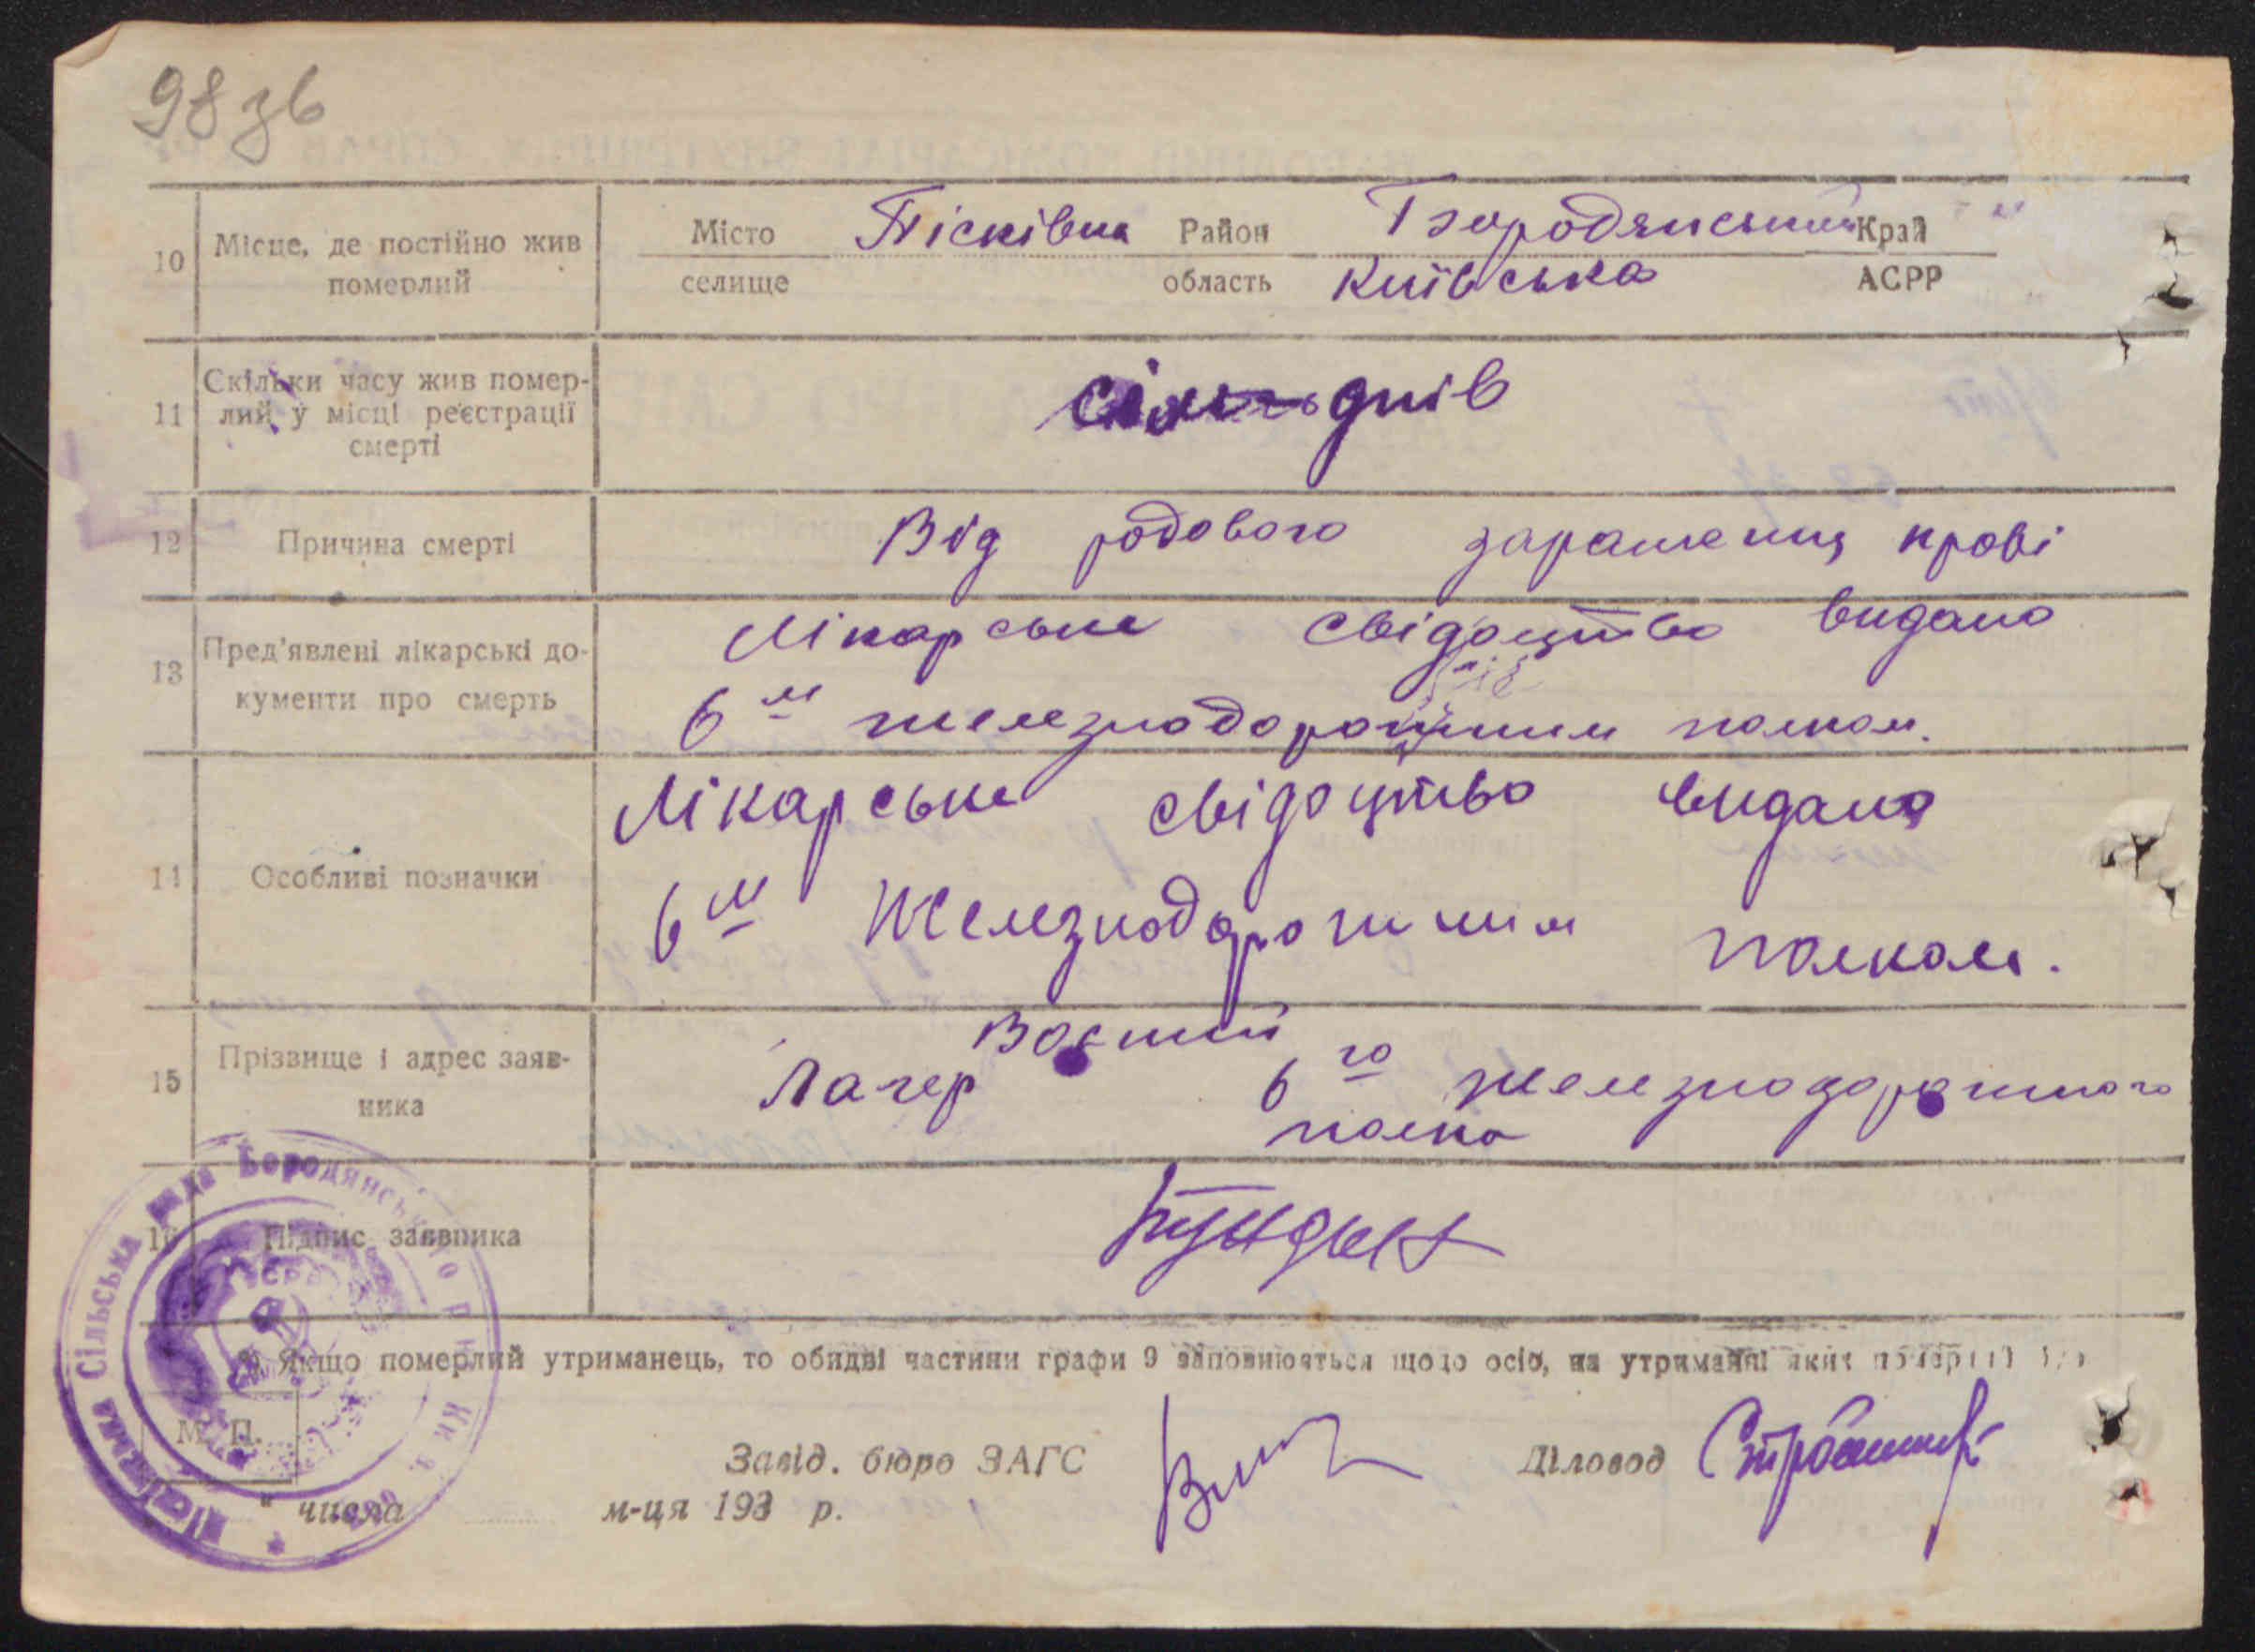 98 зв
10 Місце, де постійно жив померлий
Місто Пісківка Район Бородянський Край
селище область Київська АСРР
11 Скільки часу жив помер-
лий у місці реєстрації
смерті
днів
12 Причина смерті Від родового зараження крові
13 Пред'явлені лікарські до-
кументи про смерть
Лікарське свідоцтво видано
6м железнодорожним полком.
14 Особливі позначки
Лікарське свідоцтво видано
6м Железнодорожним полком.
15 Прізвище і адрес заяв-
ника
Воєний
Лагер 6го железнодорожного
полка
16 Підпис заявника
Якщо померлий утриманець, то обидві частини графи 9 заповнюються щодо осіб, на утриманні яких
М. П.
Завід. бюро ЗАГС Діловод
" числа м-ця 193 р.
Пісківська Сільська Рада Бородянського р-ну Київ. обл.
УСРР